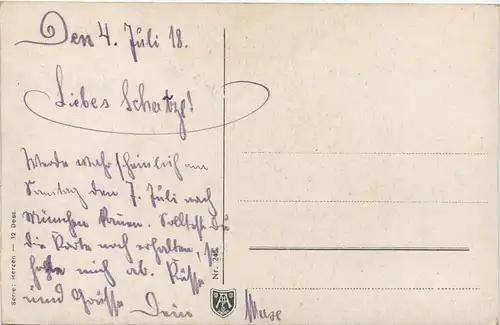 Den 4. Juli 18.
Liebes Schatzp!
Werde wahrscheinlich am
Samstag den 7. Juli nach
München kommen. Solltest Du
die Karte noch erhalten, so
hole mich ab. Küsse
und Grüsse Dein
Muse
Serie: Herzen — 12 Dess.
Nr. 246
A